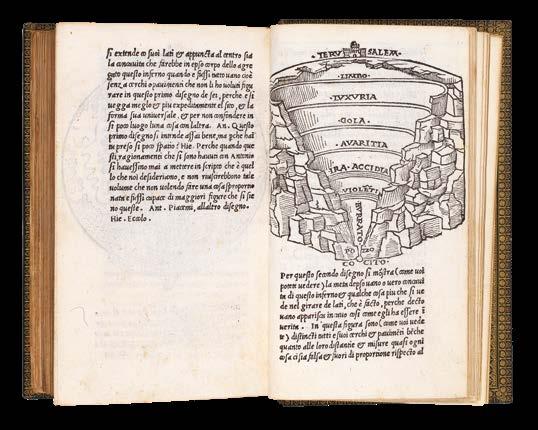 si extende co suoi lati & appuncta al centro sia
la concavita che sarebbe in epso corpo dello agre
gato questo inferno quando e fussi netto vano cioè
senza cerchi o pavimenti che non li ho voluti figu
rare in questo primo disegno de sei, perche e si
vegga meglo & piu expeditamente el sito, & la
forma sua universale, & per non confindere in
si poco luogo luna cosa con laltra. An. Questo
primo disegno si intende assai bene, ma che hai
tu preso si poco spatio? Hie. Perche quando que
sti ragionamenti che si sono havuti con Antonio
si havessino mai a mettere in scripto che è quel
lo che noi desideriamo, e non riuscirebbono tale
volume che non volendo fare una cosa sproporcio
nata e fussi capace di maggiori figure che si sie
no queste. Ant. Piacemi, allaltro disegno.
Hie. Eccolo.
IERUSALEM
LIMBO
LUXURIA
GOLA
AVARITIA
IRA·ACCIDIA
VIOLETI
BURRATO
POZZO
COCITO
Per questo secondo disegno si mostra (come voi
potete vedere) la meta depso vano o vero concavi
ta di questo inferno & qualche cosa piu che si ve
de nel girare de lati, che è facto, perche decto
vano apparisca in tuto così come egli ha essere i
verita. In questa figura sono (come voi vede
te) distincti tutti e suoi cerchi & pavimeti bēche
quanto alle loro distantie & misure quasi ogni
cosa ci sia falsa & fuori di proportione rispecto al